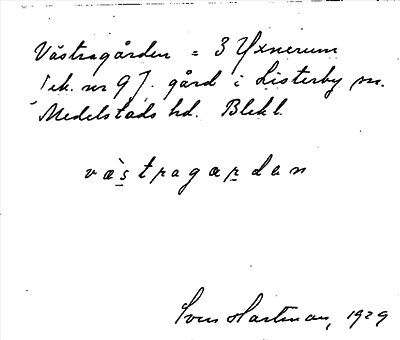 Västragården = 3 Yxnerum
(ek. nr 97. gård i Listerby sn.
Medelstads hd. Blek l.
væ̀s̲tragar̲dən
Sven Hartman, 1929